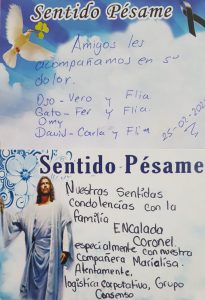 Sentido Pésame
Amigos les
acompañamos en su
dolor.
Oso - Vero y Flia.
Gato - Fer y Flia.
Omy
David - Carla y Flia
25-02-202
Sentido Pésame
Nuestras Sentidas
condolencias con la
familia
ENCALADA
CORONEL.
especialmente con nuestra
compañera Marialisa.
Atentamente.
logística Corporativo, Grupo
Consenso